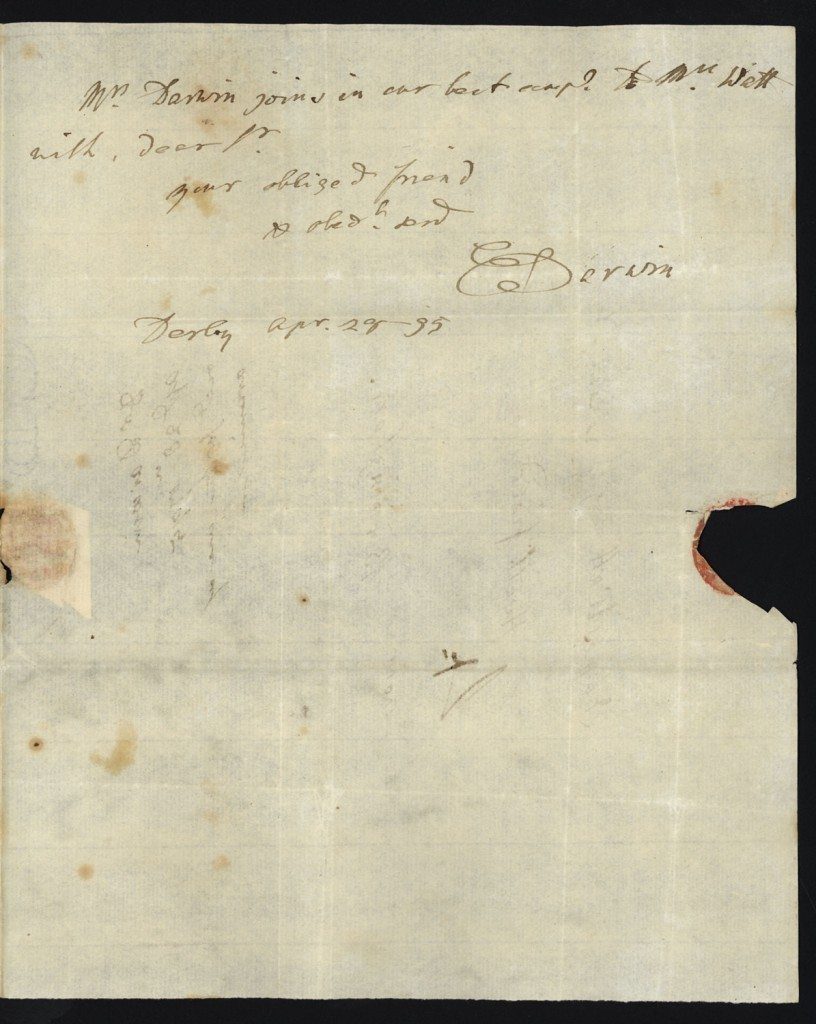 Mrs. Darwin joins in our best comp.s to Mrs. Watt
with, dear Sr.
your obliged friend
& obed.t ser.
E Darwin
Derby Apr. 29-95